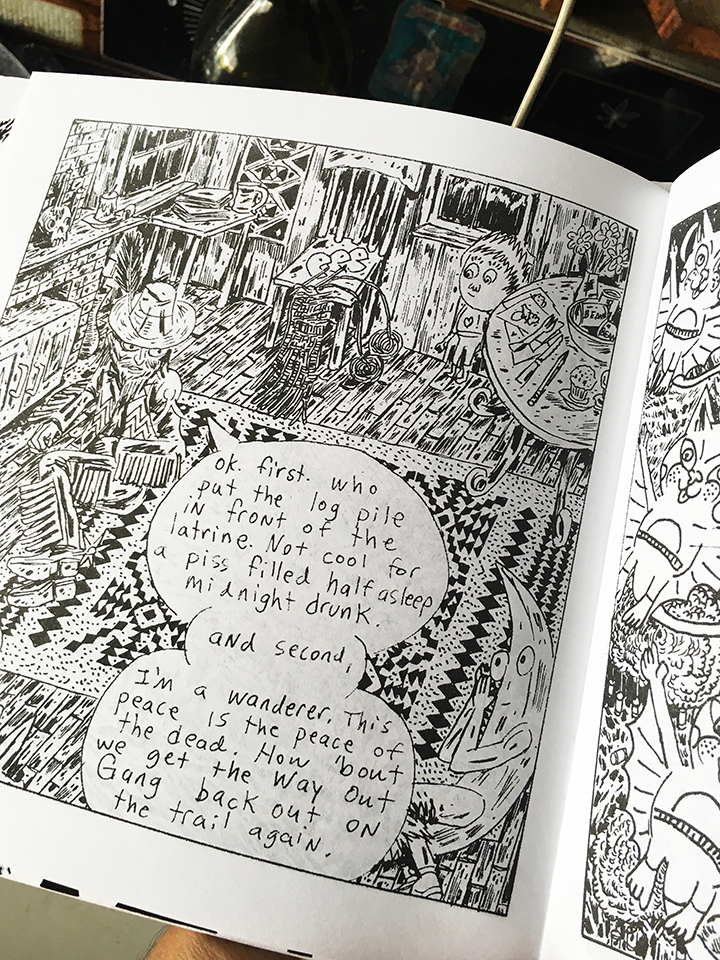 ok. first. who
put the log pile
in front of the
latrine. Not cool for
a piss filled half asleep
midnight drunk.
and second,
I'm a wanderer. This
peace is the peace of
the dead. How 'bout
we get the Way Out
Gang back out on
the trail again.